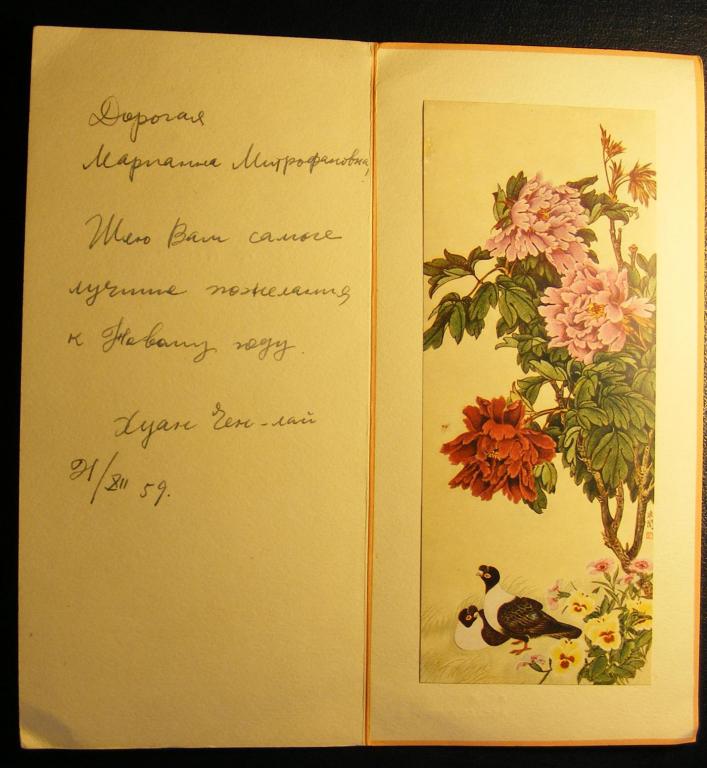 Дорогая
Марианна Митрофановна,
Шлю Вам самые
лучшие пожелания
к Новому году.
Хуан Чен-лай
21/XII 59.